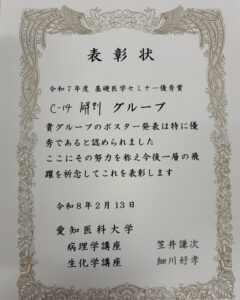 表彰状
令和7年度 基礎医学セミナー優秀賞
C-14 グループ
貴グループのポスター発表は特に優
秀であると認められました
ここにその努力を称え今後一層の飛
躍を祈念してこれを表彰します
令和8年2月13日
愛知医科大学
病理学講座 笠井謙次
生化学講座 細川好孝